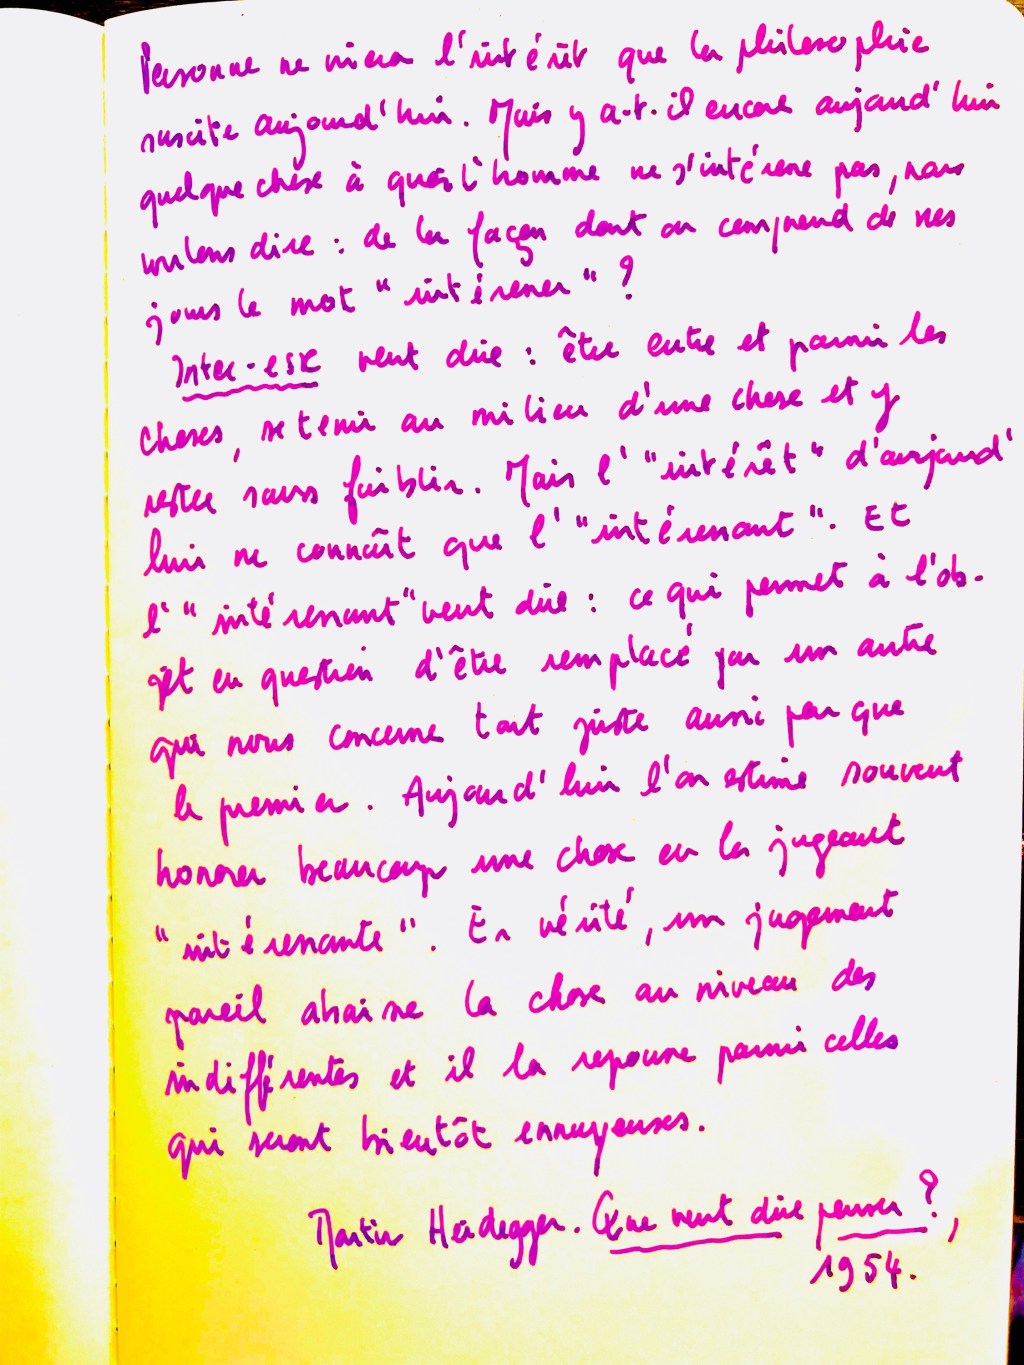 Personne ne niera l'intérêt que la philosophie
suscite aujourd'hui. Mais y a-t-il encore aujourd'hui
quelque chose à quoi l'homme ne s'intéresse pas, nous
voulons dire : de la façon dont on comprend de nos
jours le mot "intéresser" ?
Inter-esse veut dire : être entre et parmi les
choses, se tenir au milieu d'une chose et y
rester sans faiblir. Mais l'"intérêt" d'aujourd'
hui ne connaît que l'"intéressant". Et
l'"intéressant" veut dire : ce qui permet à l'ob-
jet en question d'être remplacé par un autre
qui nous concerne tout juste aussi peu que
le premier. Aujourd'hui l'on estime souvent
honorer beaucoup une chose en la jugeant
"intéressante". En vérité, un jugement
pareil abaisse la chose au niveau des
indifférentes et il la repousse parmi celles
qui seront bientôt ennuyeuses.
Martin Heidegger. Que veut dire penser ?,
1954.